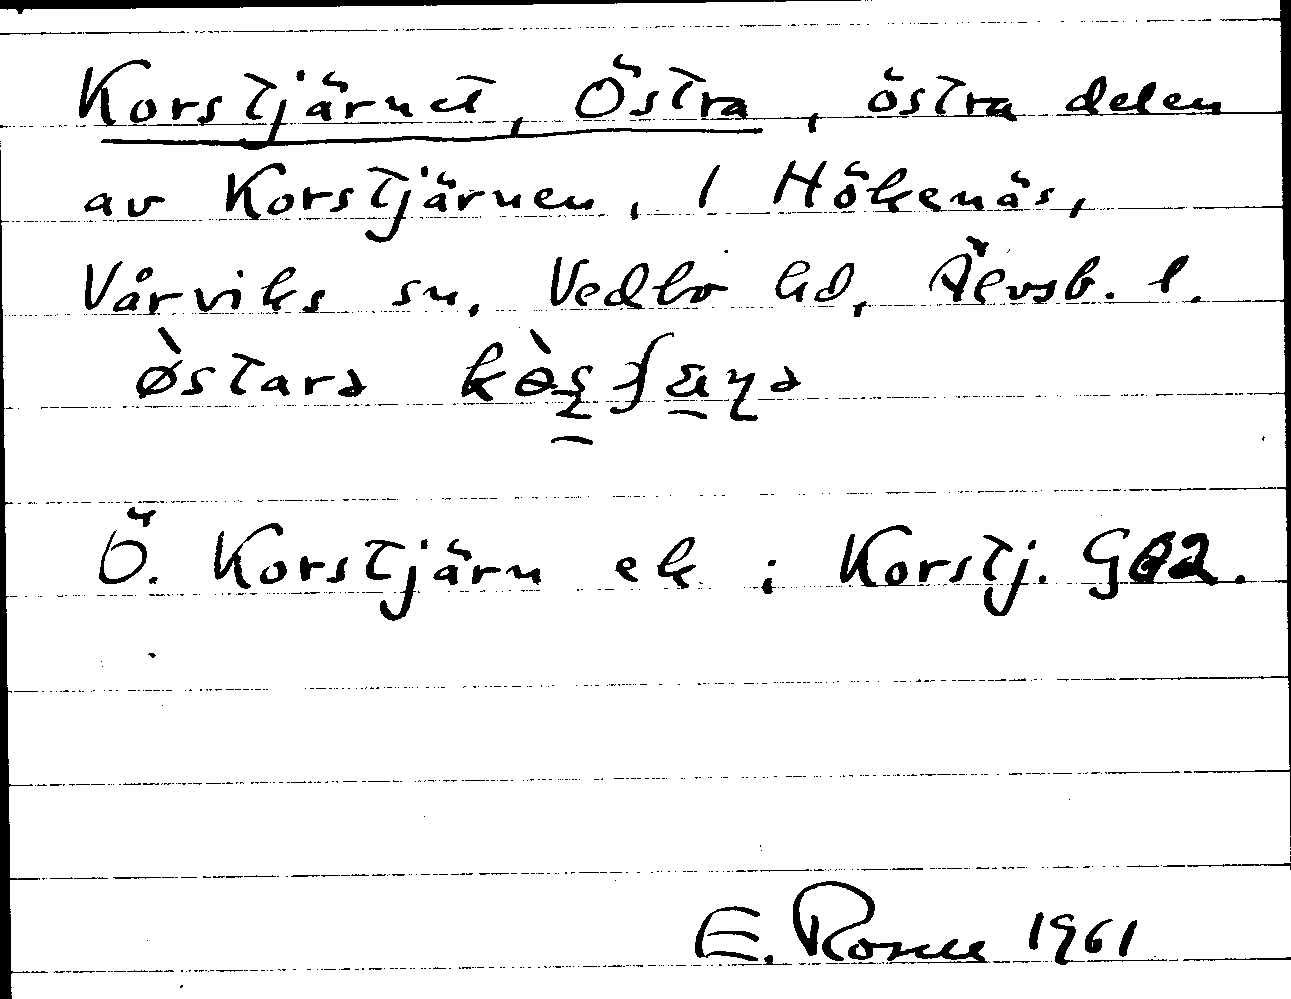 Korstjärnet, Östra, östra delen
av Korstjärnen, i Hökenäs,
Vårviks sn, Vedbo hd, Älvsb. l.
østarə
Ö. Korstjärn ek ; Korstj. G
E. Rosne 1961